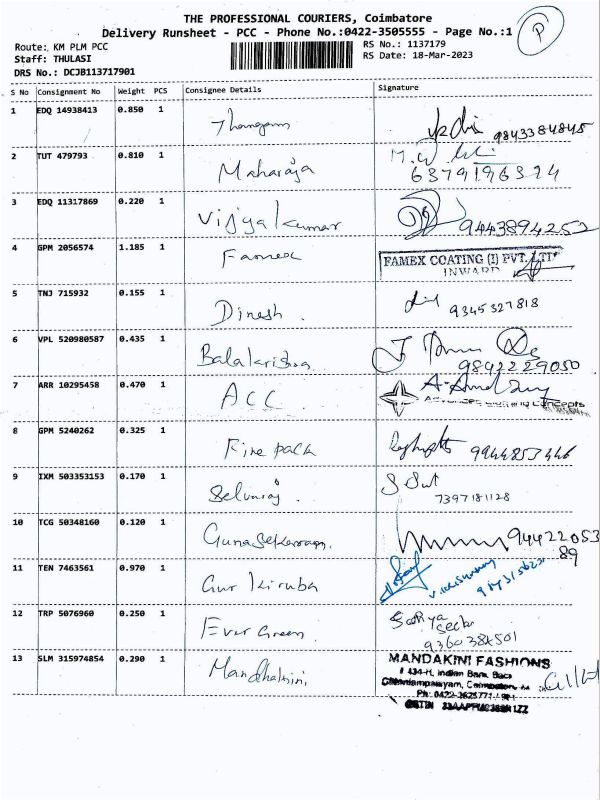 THE PROFESSIONAL COURIERS, Coimbatore
Delivery Runsheet - PCC - Phone No.:0422-3505555 - Page No.:1
P
Route: KM PLM PCC
RS No.: 1137179
Staff: THULASI
RS Date: 18-Mar-2023
DRS No.: DCJB113717901
S No Consignment No Weight PCS Consignee Details Signature
1 EDQ 14938413 0.850 1 Thangam 9843384845
2 TUT 479793 0.810 1 Maharaja 6379196374
3 EDQ 11317869 0.220 1 Vijyakumar 9443894253
4 GPM 2056574 1.185 1 Famex FAMEX COATING (I) PVT. LTD
INWARD
5 TNJ 715932 0.155 1 Dinesh. 9345327818
6 VPL 520980587 0.435 1 Balakrishna 9842229050
7 ARR 10295458 0.470 1 ACC
8 GPM 5240262 0.325 1 Fine pack 9944853446
9 IXM 503353153 0.170 1 Selvaraj. 7397181128
10 TCG 50348160 0.120 1 Gunasekaran. 94422053
89
11 TEN 7463561 0.970 1 Gur kiruba
12 TRP 5076960 0.250 1 Ever Green. Sathya
9360384501
13 SLM 315974854 0.290 1 Mandhakini. MANDAKINI FASHIONS
434-H, Indian Bank Back